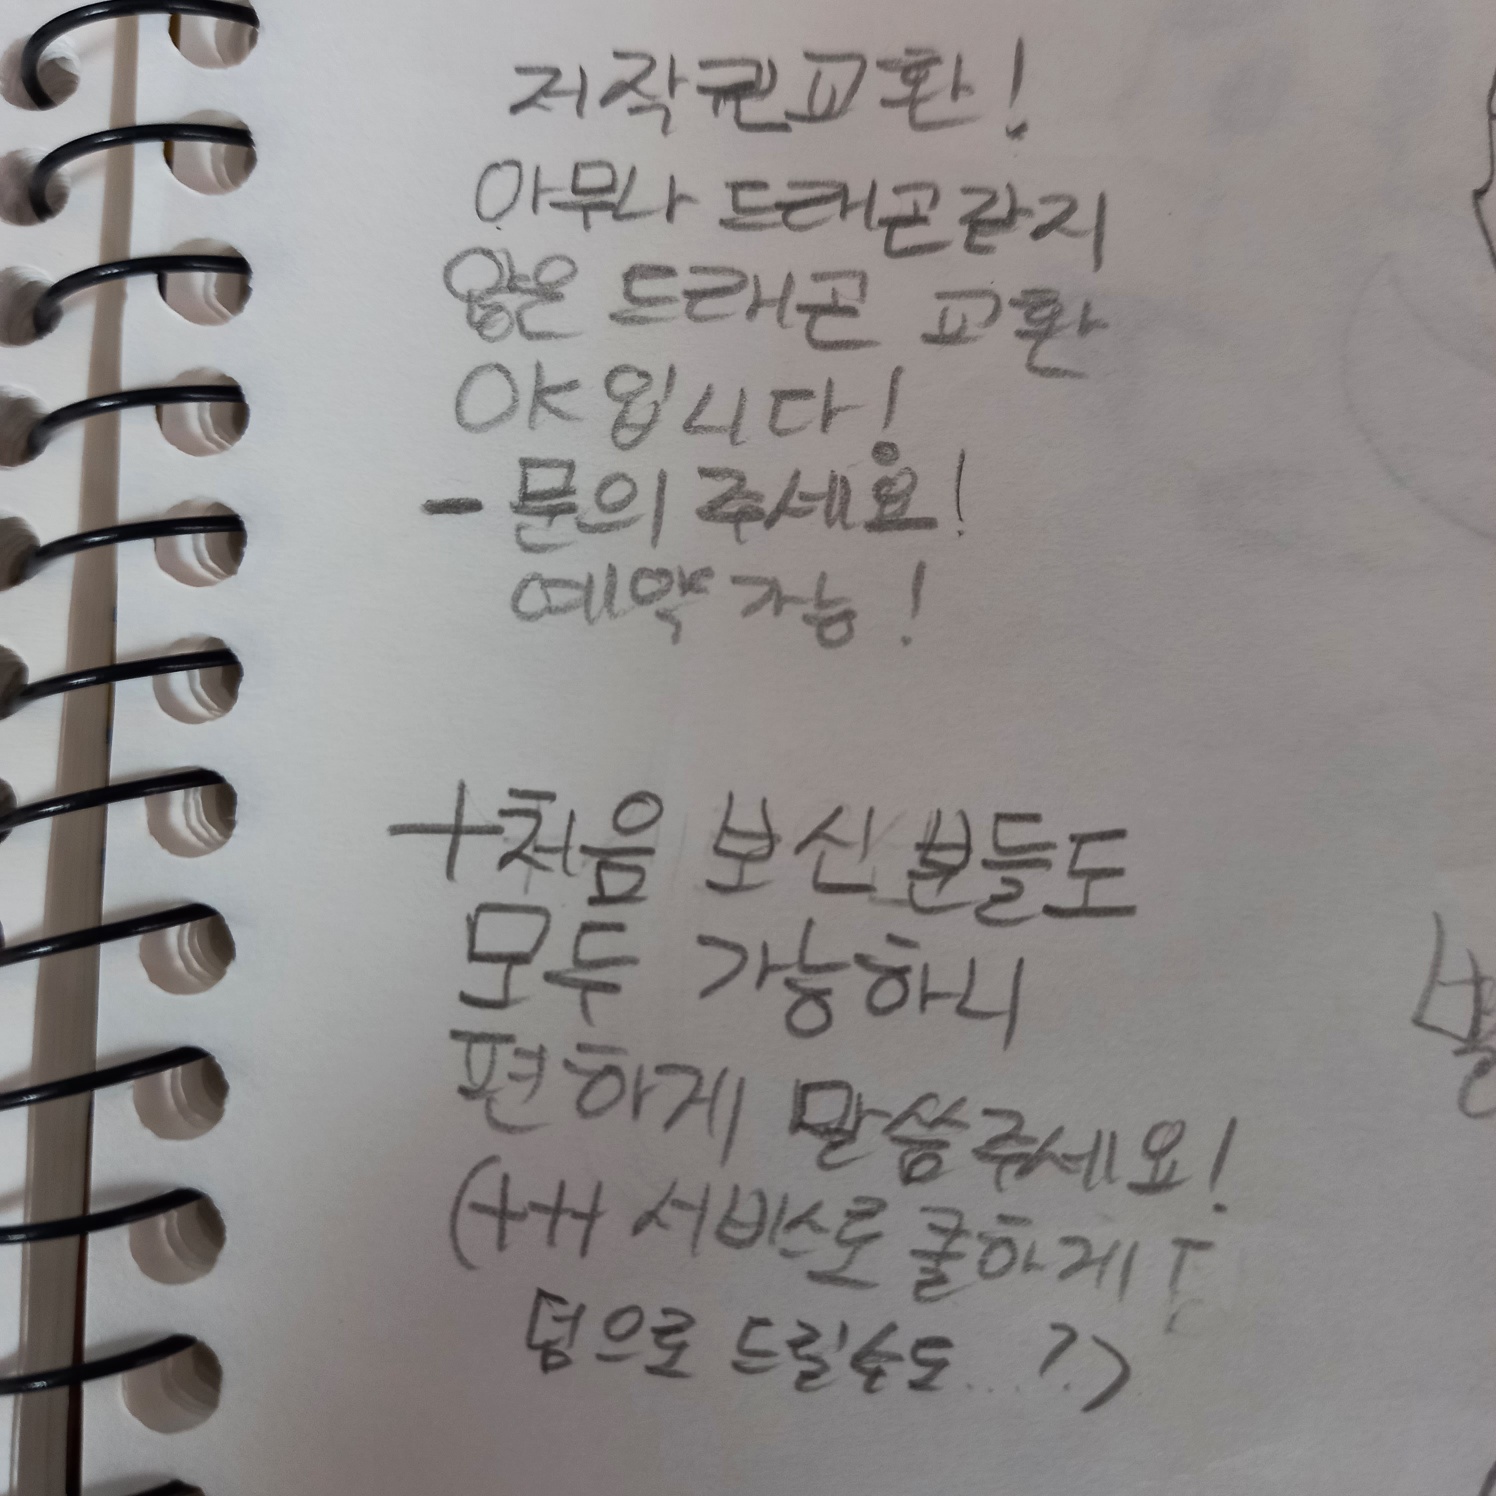 저작권교환!
아무나 드래곤관지
않은 드래곤 교환
OK입니다!
- 문의 주세요!
예약가능!
+처음 보신분들도
모두 가능하니
편하게 말씀주세요!
(+++ 서비스로 쿨하게
덤으로 드릴수도...?)